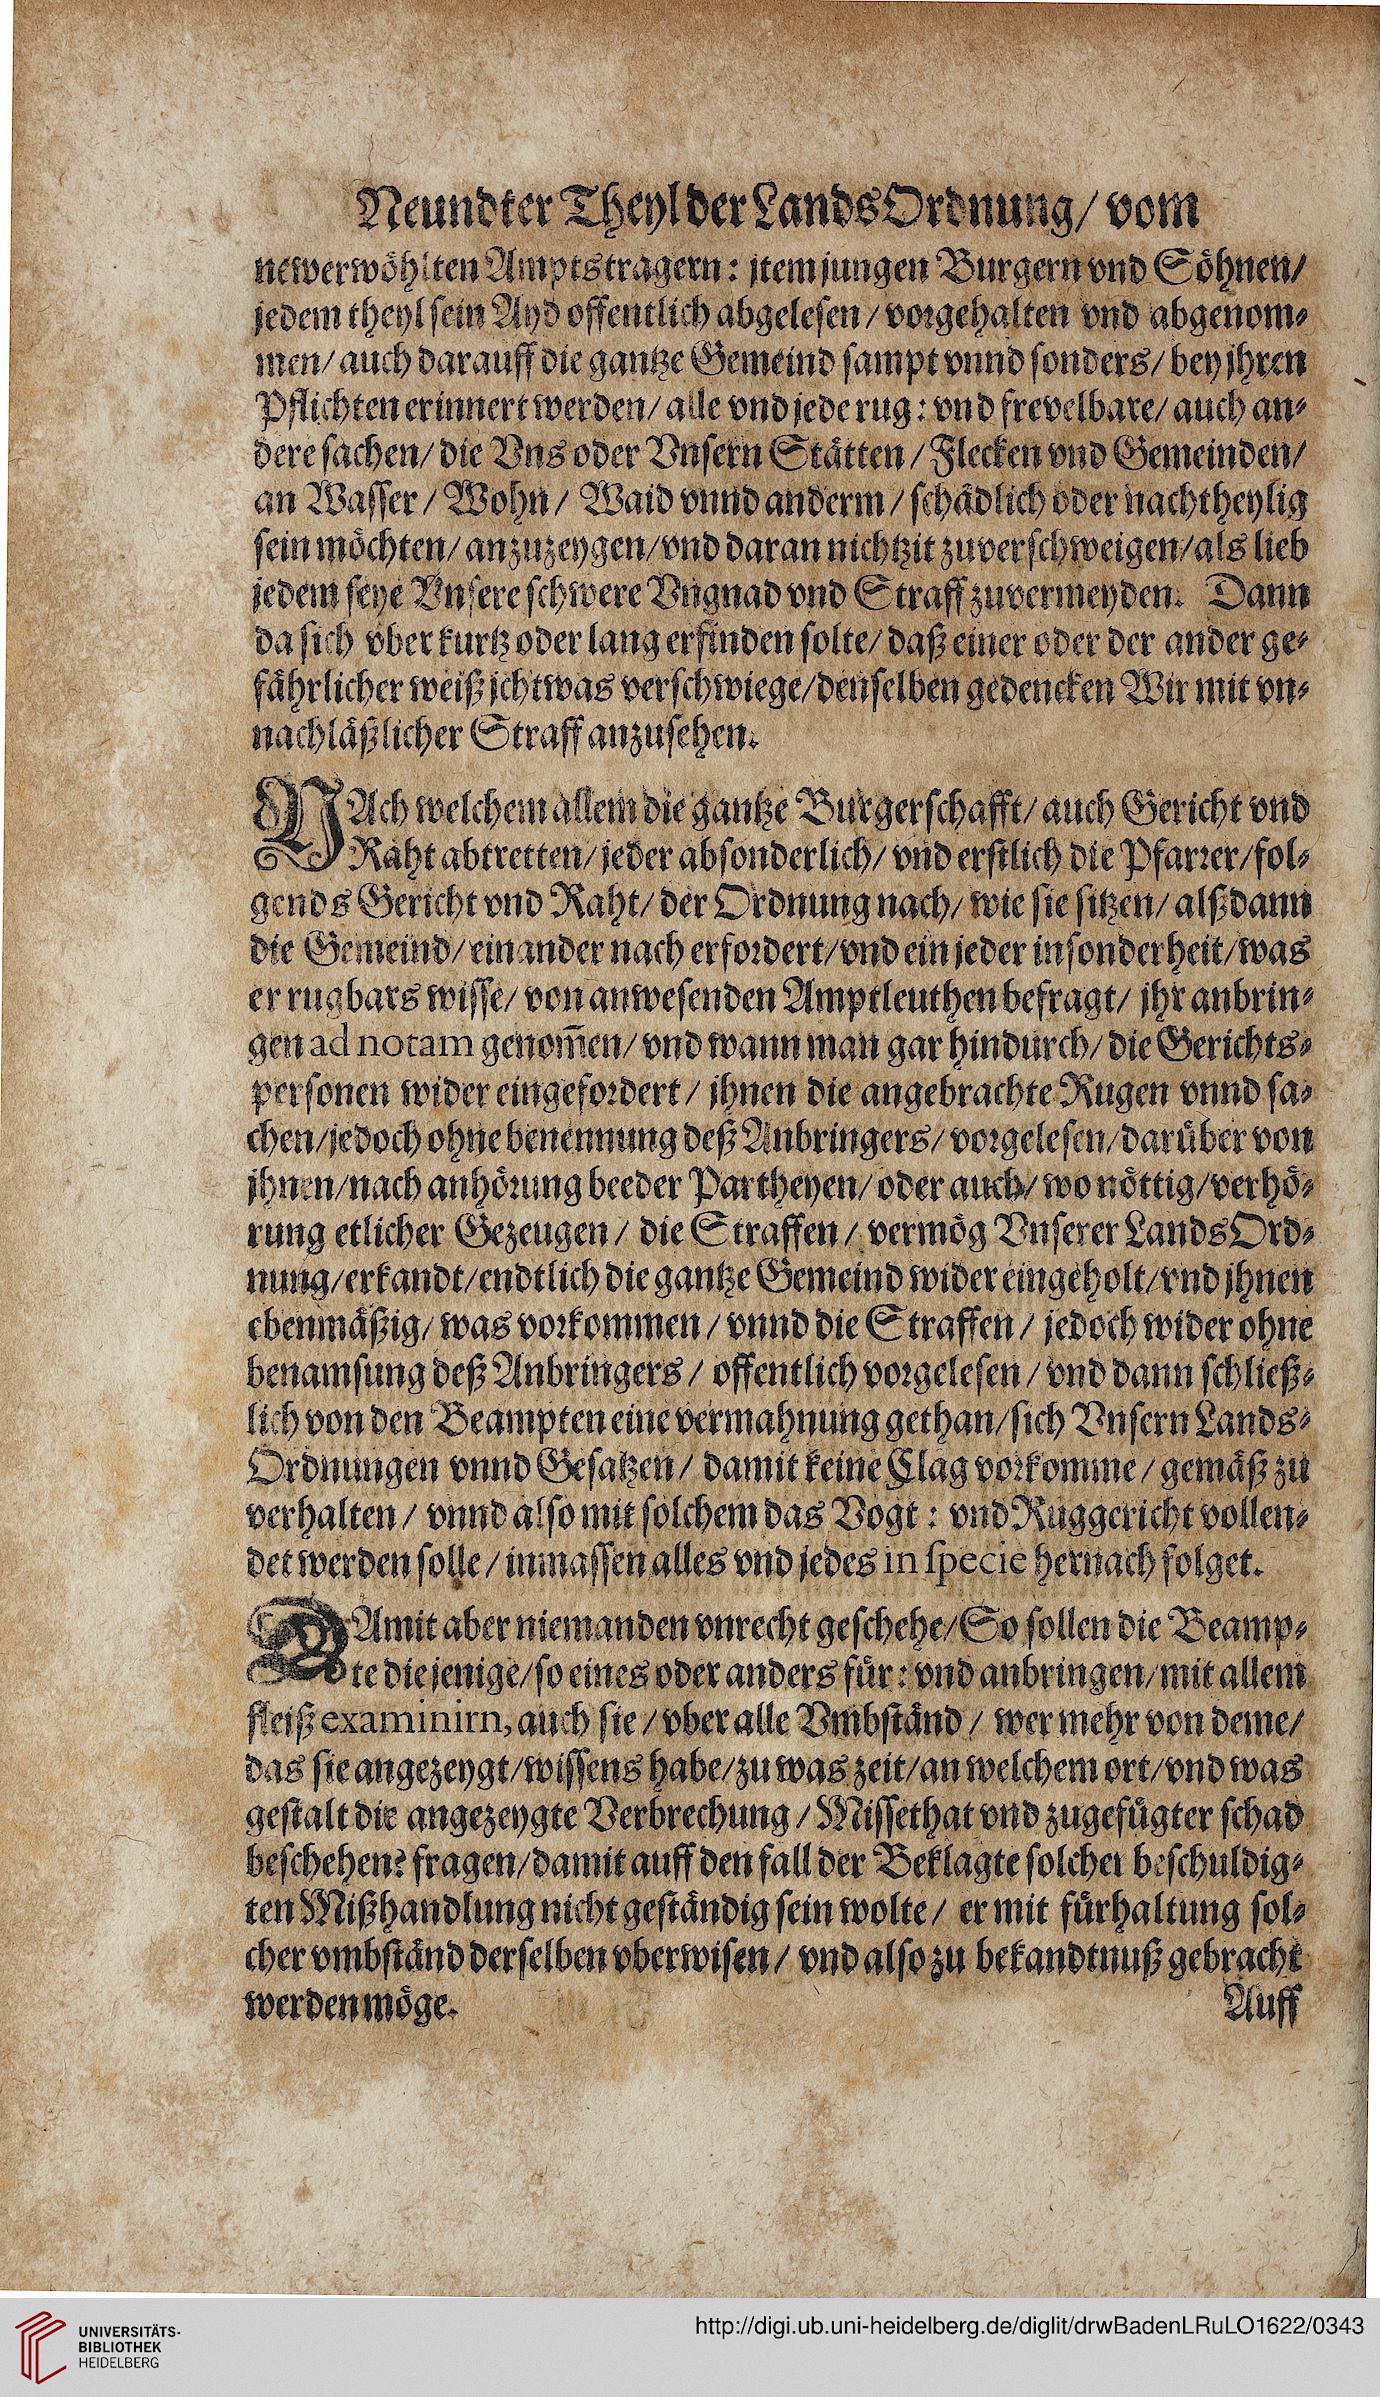 Neundter Theyl der LandsOrdnung/ vom
newerwöhlten Amptstragern: jtem jungen Burgern vnd Söhnen/
jedem theyl sein Ayd offentlich abgelesen/ vorgehalten vnd abgenom-
men/ auch darauff die gantze Gemeind sampt vnnd sonders/ bey jhren
Pflichten erinnert werden/ alle vnd jede rug: vnd frevelbare/ auch an-
dere sachen/ die Vns oder Vnsern Stätten/ Flecken vnd Gemeinden/
an Wasser/ Wohn/ Waid vnnd anderm/ schädlich oder nachtheylig
sein möchten/ anzuzeygen/ vnd daran nichtzit zuverschweigen/ als lieb
jedem seye Vnsere schwere Vngnad vnd Straff zuvermeyden. Dann
da sich vber kurtz oder lang erfinden solte/ daß einer oder der ander ge-
fährlicher weiß jchtwas verschwiege/ denselben gedencken Wir mit vn-
nachläßlicher Straff anzusehen.
NAch welchem allem die gantze Burgerschafft/ auch Gericht vnd
Raht abtretten/ jeder absonderlich/ vnd erstlich die Pfarrer/ fol-
gends Gericht vnd Raht/ der Ordnung nach/ wie sie sitzen/ alßdann
die Gemeind/ einander nach erfordert/ vnd ein jeder insonderheit/ was
er rugbars wisse/ von anwesenden Amptleuthen befragt/ jhr anbrin-
gen ad notam genom̃en/ vnd wann man gar hindurch/ die Gerichts-
personen wider eingefordert/ jhnen die angebrachte Rugen vnnd sa-
chen/ jedoch ohne benennung deß Anbringers/ vorgelesen/ darüber von
jhnen/ nach anhörung beeder Partheyen/ oder auch/ wo nöttig/ verhö-
rung etlicher Gezeugen/ die Straffen/ vermög Vnserer LandsOrd-
nung/ erkandt/ endtlich die gantze Gemeind wider eingeholt/ vnd jhnen
ebenmäßig/ was vorkommen/ vnnd die Straffen/ jedoch wider ohne
benamsung deß Anbringers/ offentlich vorgelesen/ vnd dann schließ-
lich von den Beampten eine vermahnung gethan/ sich Vnsern Lands-
Ordnungen vnnd Gesatzen/ damit keine Clag vorkomme/ gemäß zu
verhalten/ vnnd also mit solchem das Vogt: vnd Ruggericht vollen-
det werden solle/ inmassen alles vnd jedes in specie hernach folget.
DAmit aber niemanden vnrecht geschehe/ So sollen die Beamp-
te diejenige/ so eines oder anders für: vnd anbringen/ mit allem
fleiß examinirn, auch sie/ vber alle Vmbständ/ wer mehr von deme/
das sie angezeygt/ wissens habe/ zu was zeit/ an welchem ort/ vnd was
gestalt die angezeygte Verbrechung/ Missethat vnd zugefügter schad
beschehen? fragen/ damit auff den fall der Beklagte solcher beschuldig-
ten Mißhandlung nicht geständig sein wolte/ er mit fürhaltung sol-
cher vmbständ derselben vberwisen/ vnd also zu bekandtnuß gebracht
werden möge.
Auff
UNIVERSITÄTS-
BIBLIOTHEK
HEIDELBERG
http://digi.ub.uni-heidelberg.de/diglit/drwBadenLRuLO1622/0343